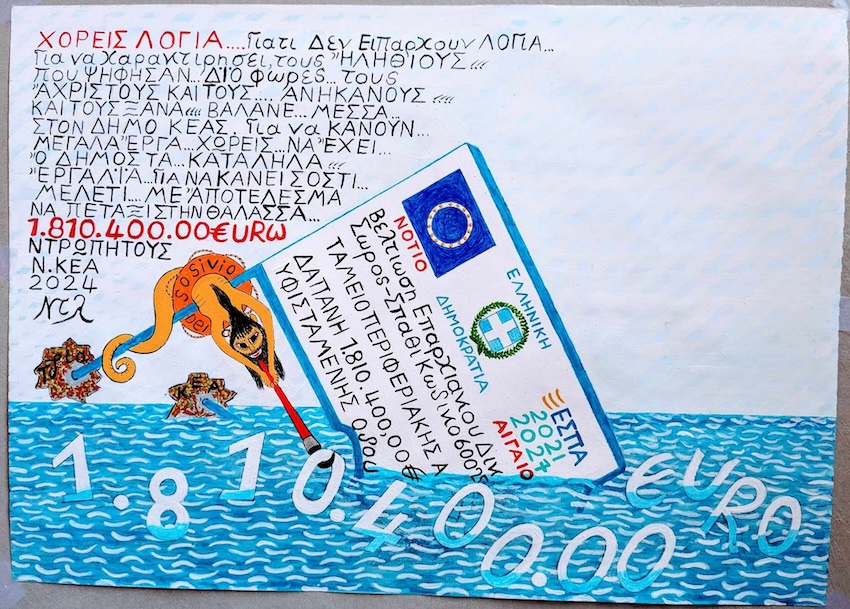 ΧΟΡΕΙΣ ΛΟΓΙΑ.... Γιατι Δεν Ειπαρχουν ΛΟΓΙΑ...
Για να χαρακτιρησει, τους "ΗΛΗΘΙΟΥΣ
που ΨΗΦΗΣΑΝ... ΔΙΟ φωρες... τους
"ΑΧΡΙΣΤΟΥΣ ΚΑΙ ΤΟΥΣ.... ΑΝΗΚΑΝΟΥΣ
ΚΑΙ ΤΟΥΣ ΞΑΝΑ ΒΑΛΑΝΕ... ΜΕΣΣΑ...
ΣΤΟΝ ΔΗΜΟ ΚΕΑΣ. Για να ΚΑΝΟΥΝ...
ΜΕΓΑΛΑ "ΕΡΓΑ... ΧΩΡΕΙΣ... ΝΑ "ΕΧΕΙ...
"Ο ΔΗΜΟΣ ΤΑ... ΚΑΤΑΛΗΛΑ
"ΕΡΓΑΛΙΑ... ΓΙΑ ΝΑ ΚΑΝΕΙ ΣΟΣΤΙ...
ΜΕΛΕΤΙ.... ΜΕ "ΑΠΟΤΕΔΕΣΜΑ
ΝΑ ΠΕΤΑΞΙ ΣΤΗΝ ΘΑΛΑΣΣΑ...
1.810.400.00€URω
ΝΤΡΩΠΗΤΟΥΣ
Ν.ΚΕΑ
2024
Ντλ
sosivio
ΝΟΤΙΟ
ΑΙΓΑΙΟ
ΕΛΛΗΝΙΚΗ
ΔΗΜΟΚΡΑΤΙΑ
ΕΣΠΑ
2021
2027
Βελτιωση Επαρχιακου Δικ
Σωρος-Σπαθι Κωδικο 60025
ΤΑΜΕΙΟ ΠΕΡΙΦΕΡΙΑΚΗΣ Α
ΔΑΠΑΝΗ 1.810.400,00€
ΥΦΙΣΤΑΜΕΝΗΣ Οδου
1.810.400.00 €URO